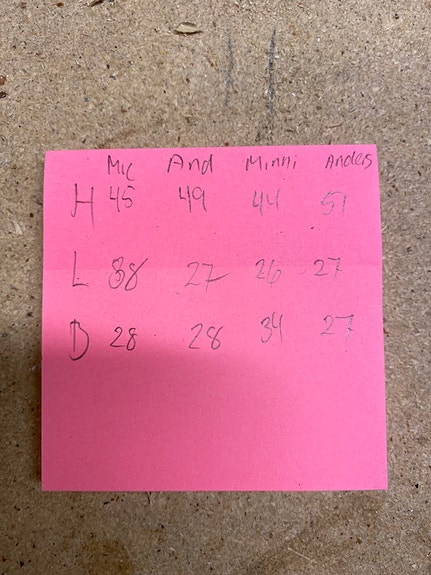 Mic And Minni Anders
H 45 49 44 51
L 38 27 26 27
D 28 28 34 27